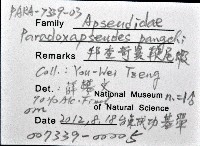 PARA-7339-03
Family Apseudidae
Paradoxapseudes pangchi
Remarks 邦查奇異鞍尾蝦
Coll.: You-Wei Tzeng
Det.:
National Museum n=18
70% Alc. from
of Natural Science
Date 2012.8.18
007339-00005